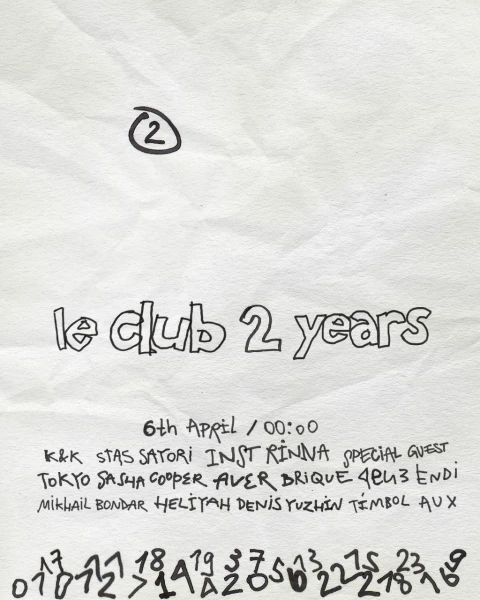 2
le club 2 years
6th APRIL / 00:00
K&K STAS SATORi INST RINNA SPECIAL GUEST
TOKYO SASHA COOPER AVER BRIQUE 4EU3 ENDI
MIKHAIL BONDAR HELIYAH DENIS YUZHIN TIMBOL AUX